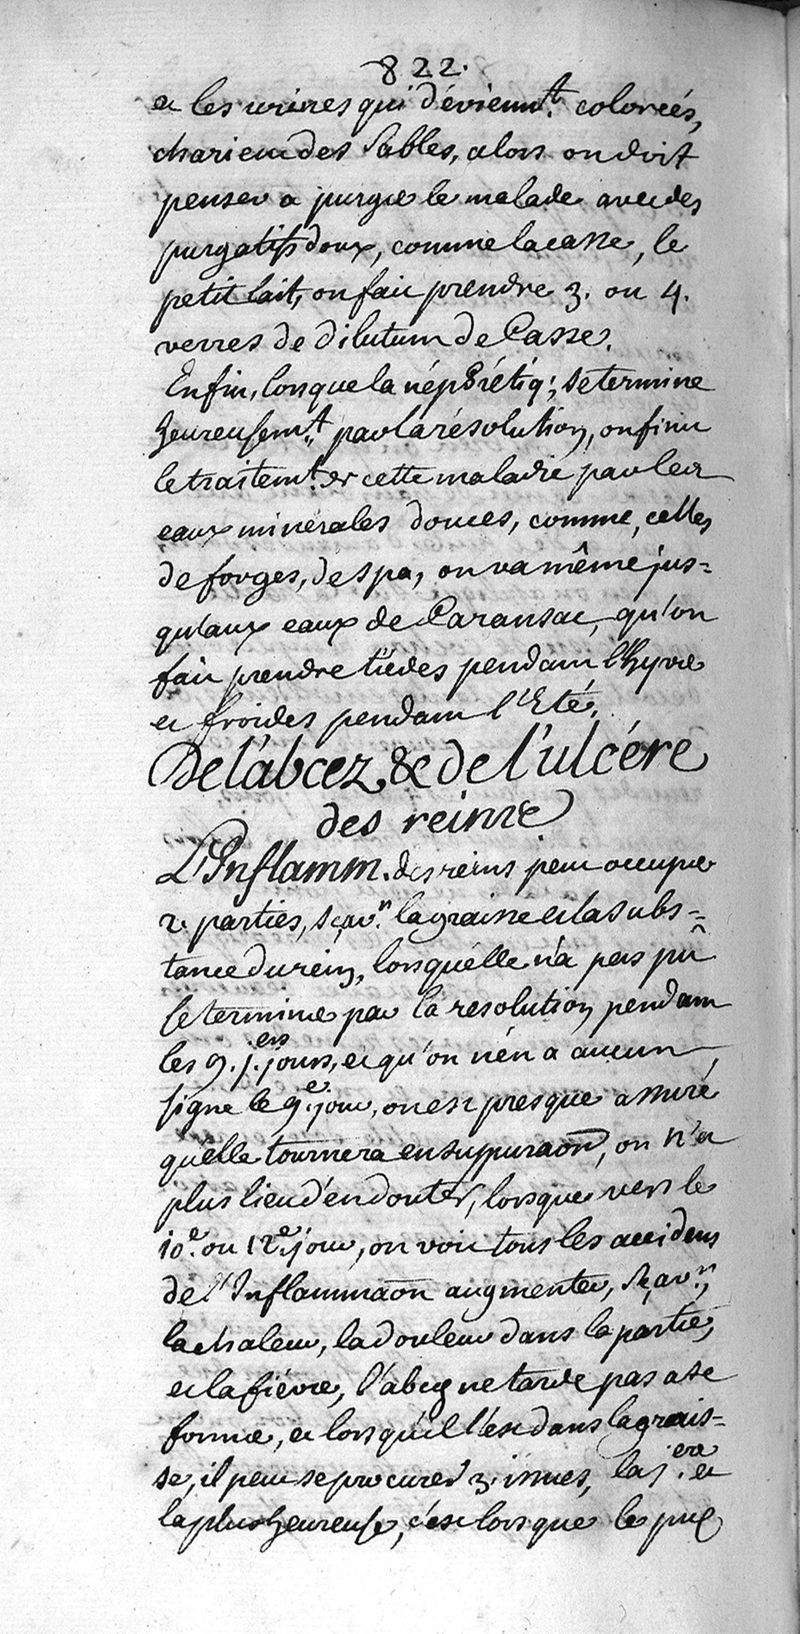 822.
et les urines qui déviennt. colorées,
charient des Sables, alors on doit
penser a purger le malade avec des
purgatifs doux, comme la casse, le
petit lait, on fait prendre 3. ou 4.
verres de dilutum de Casse.
Enfin, lorsque la néphrétiq; se termine
heureusemt. par la résolution, on finit
le traitemt. de cette maladie par les
eaux minérales douces, comme, celles
de forges, de spa, on va même jus=
qu'aux eaux de Caransac, qu'on
fait prendre tiédes pendant l'hyver
et froides pendant l'Eté.
De l'abcez & de l'ulcére
des reins
L'Inflamm. des reins peut occuper
2 parties, sçavr. la graisse et la subs=
tance du rein, lorsqu'elle n'a pas pû
se terminer par la resolution pendant
les 9. p.ers jours, et qu'on n'en a aucun
signe le 9e. jour, on est presque assuré
qu'elle tournera en suppuraõn, on n'a
plus lieu d'en douter, lorsque vers le
10e. ou 12e. jour, on voit tous les accidens
de l'Inflammaõn augmenter, sçavr.,
la chaleur, la douleur dans la partie,
et la fiévre, l'abcez ne tarde pas a se
former, et lorsqu'il l'est dans la grais=
se, il peut se procurer 3. issues, la 1ere. et
la plus heureuse, c'est lorsque le pus